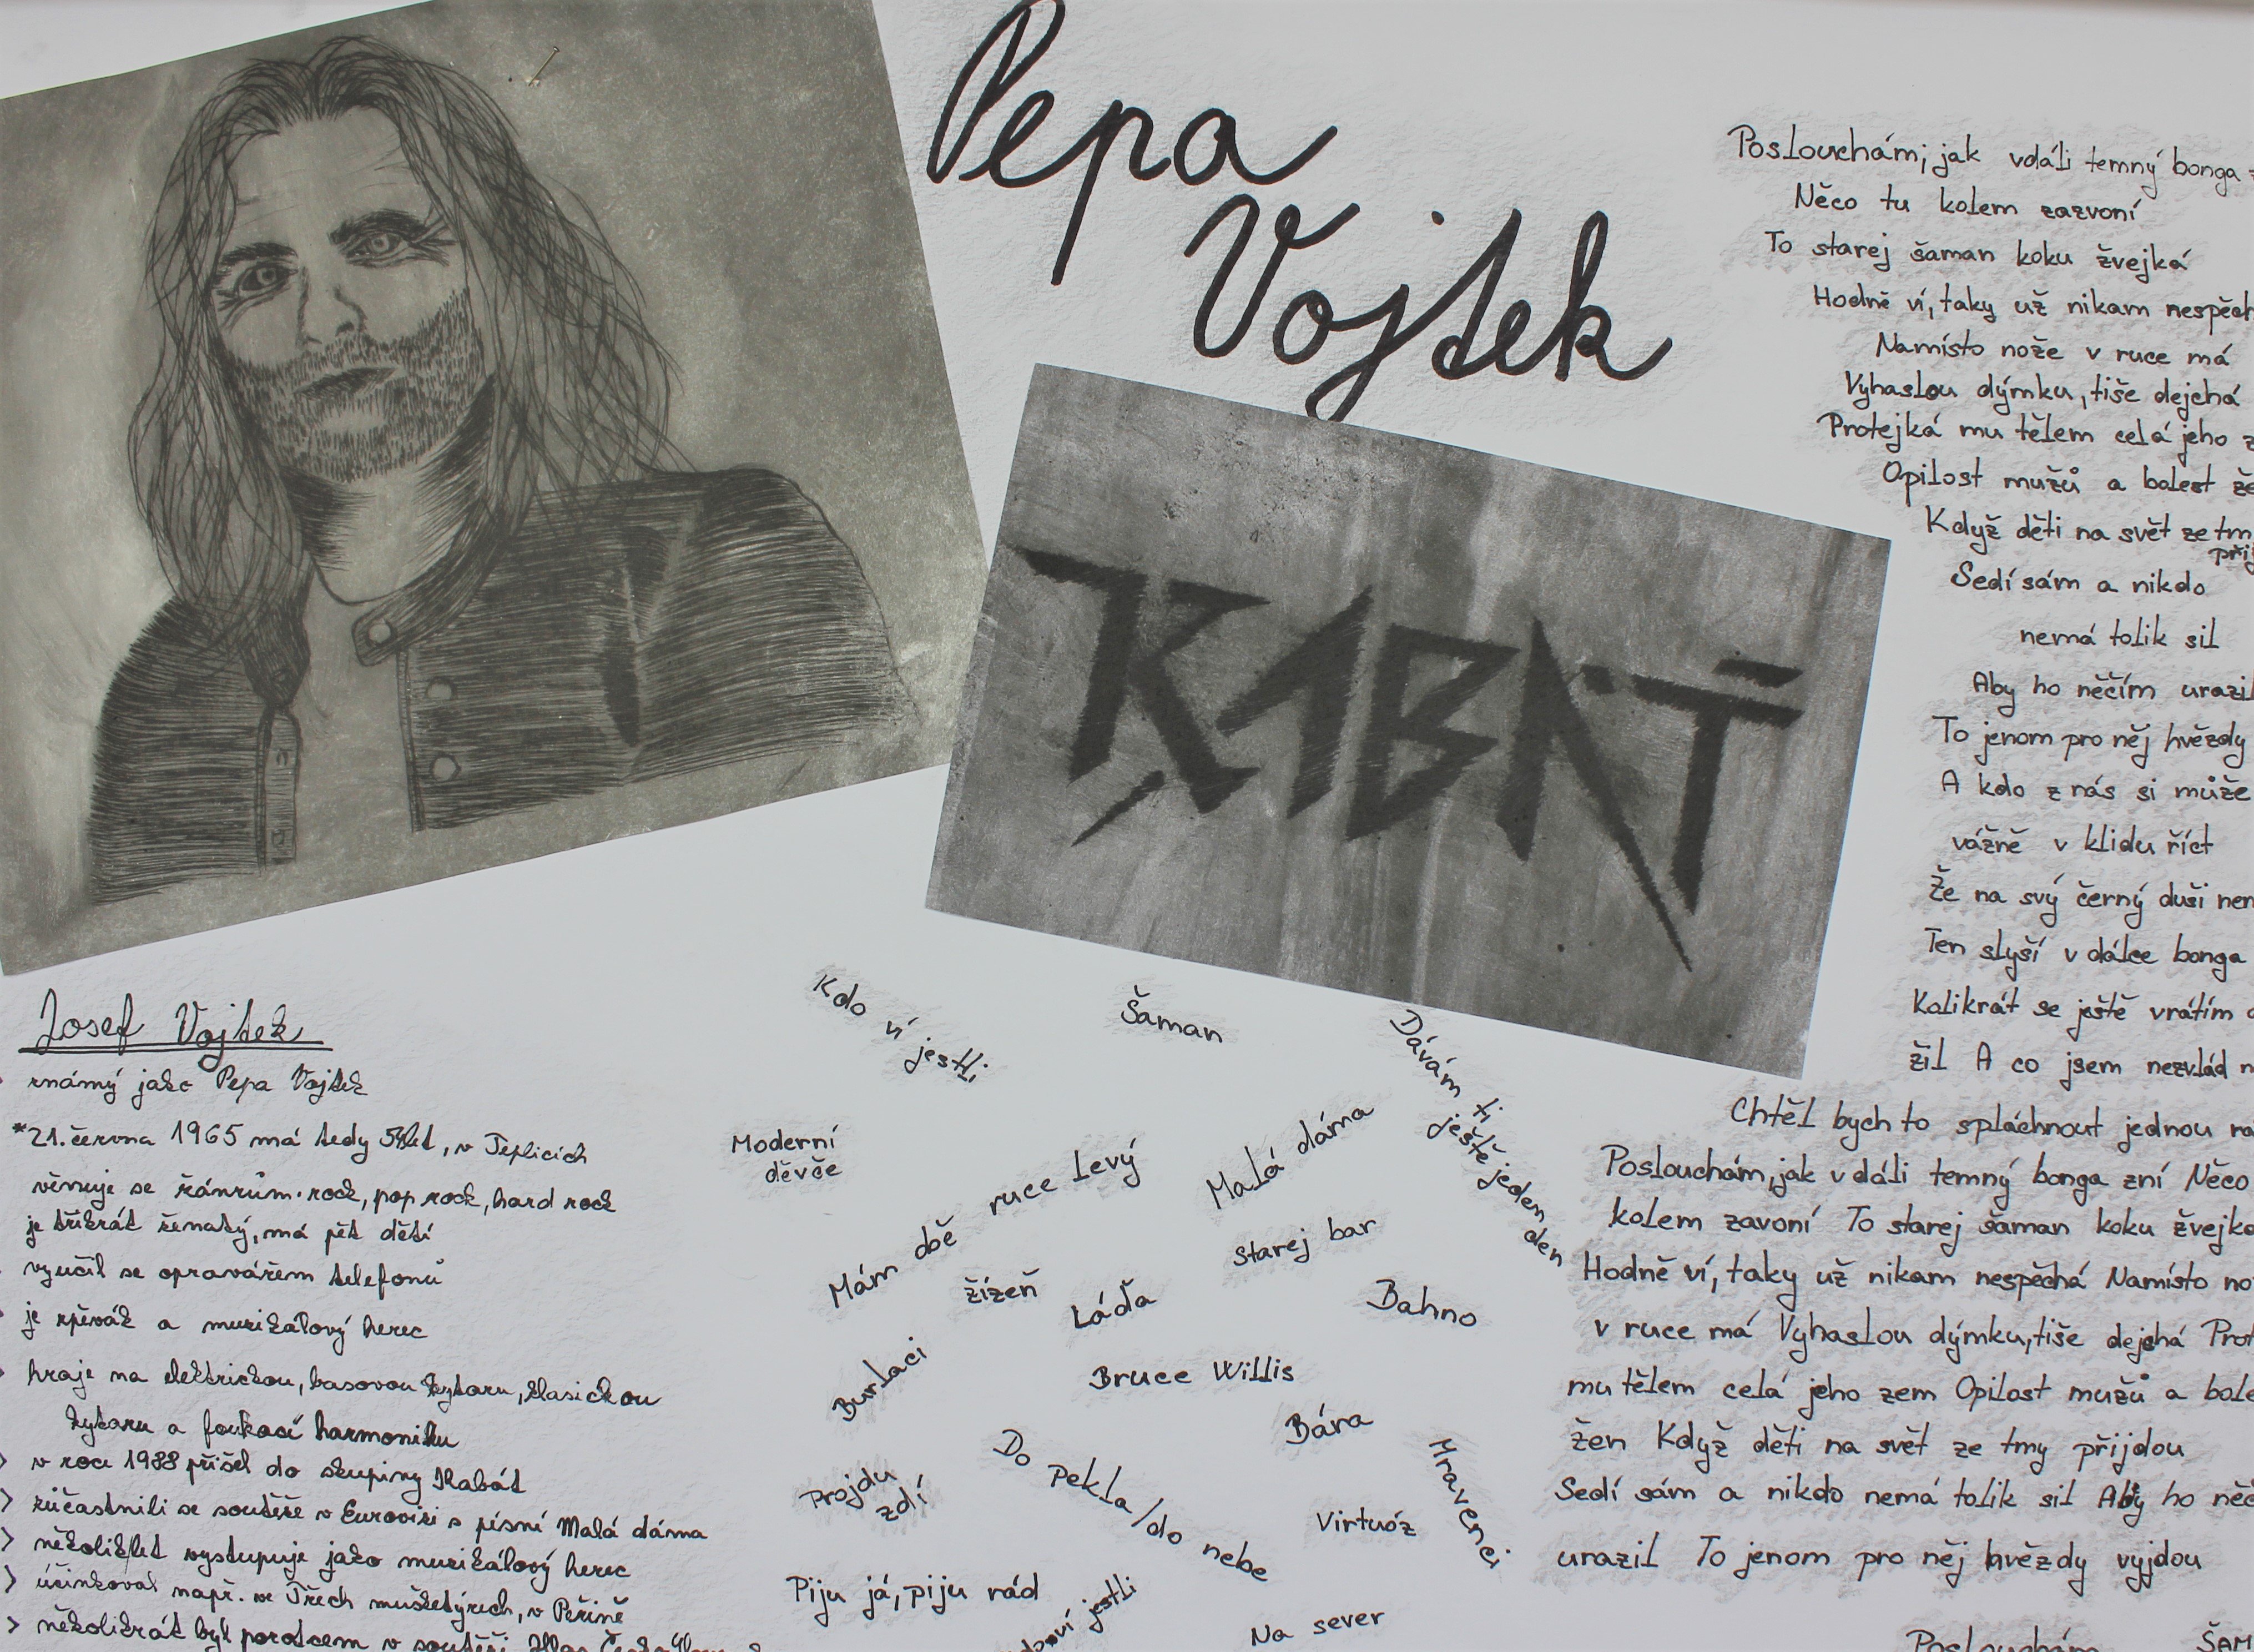 Pepa
Vojtek
KABÁT
Josef Vojtek
známý jako Pepa Vojtek
*21. června 1965 má tedy let, v Teplicích
věnuje se žánrům: rock, pop rock, hard rock
je třikrát ženatý, má pět dětí
vyučil se opravářem telefonů
je zpěvák a muzikálový herec
hraje na elektrickou, basovou kytaru, klasickou
kytaru a foukací harmoniku
> v roce 1988 přišel do skupiny Kabát
> zúčastnili se soutěže v Eurovizi s písní Malá dáma
> několik let vystupuje jako muzikálový herec
> účinkoval např. ve Třech mušketýrech, v Peřině
> několikrát byl porotcem v soutěži Hlas
Kdo ví jestli
Šaman
Dávám ti
ještě jeden den
Moderní
děvče
Mám obě ruce levý
Malá dáma
Starej bar
žízeň
Láďa
Bahno
Burlaci
Bruce Willis
Bára
Do pekla/do nebe
Mravenci
Projdu
zdí
Virtuóz
Piju já, piju rád
jestli
Na sever
Poslouchám, jak vdáli temný bonga
Něco tu kolem zazvoní
To starej šaman koku žvejká
Hodně ví, taky už nikam nespěch
Namísto nože v ruce má
Vyhaslou dýmku, tiše dejchá
Protejká mu tělem celá jeho z
Opilost mužů a bolest že
Když děti na svět ze tm
při
Sedí sám a nikdo
nemá tolik sil
Aby ho něčím urazil
To jenom pro něj hvězdy
A kdo z nás si může
vážně v klidu říct
Že na svý černý duši nem
Ten slyší v dálce bonga
Kolikrát se ještě vrátím
žil A co jsem nezvlád n
Chtěl bych to spláchnout jednou ra
Poslouchám, jak vdáli temný bonga zní Něco
kolem zavoní To starej šaman koku žvejka
Hodně ví, taky už nikam nespěchá Namísto no
v ruce má Vyhaslou dýmku, tiše dejchá Prot
mu tělem celá jeho zem Opilost mužů a bole
žen Když děti na svět ze tmy přijdou
Sedí sám a nikdo nemá tolik sil Aby ho něč
urazil To jenom pro něj hvězdy vyjdou
Poslouchám
ŠAM